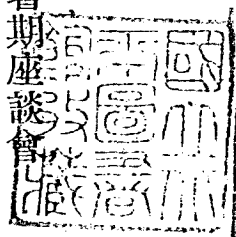 期座談會
國立北
平圖書
館收藏